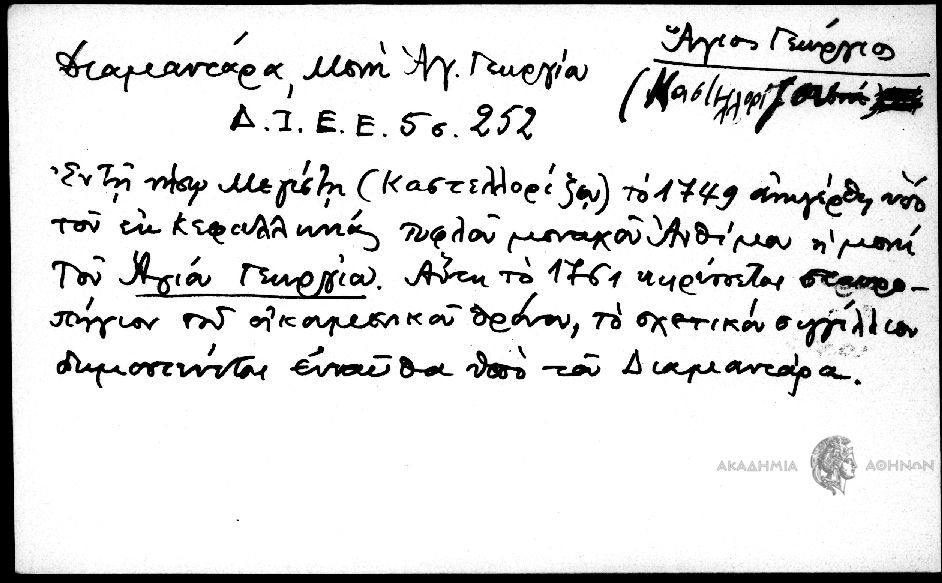 Ἅγιος Γεώργιος
(Καστελλορίζου)
Διαμαντάρα, Μονὴ Ἁγ. Γεωργίου
Δ.Ι.Ε.Ε. 5 σ. 252
Ἐν τῇ νήσῳ Μεγίστῃ (Καστελλορίζου) τὸ 1749 ἀνηγέρθη ὑπὸ
τοῦ ἐκ Κεφαλληνίας τυφλοῦ μοναχοῦ Ἀνθίμου ἡ μονὴ
τοῦ Ἁγίου Γεωργίου. Αὕτη τὸ 1751 κηρύσσεται σταυρο-
πήγιον τοῦ οἰκουμενικοῦ θρόνου, τὸ σχετικὸν σιγγίλλιον
δημοσιεύεται ἐνταῦθα ὑπὸ τοῦ Διαμαντάρα.
ΑΚΑΔΗΜΙΑ ΑΘΗΝΩΝ